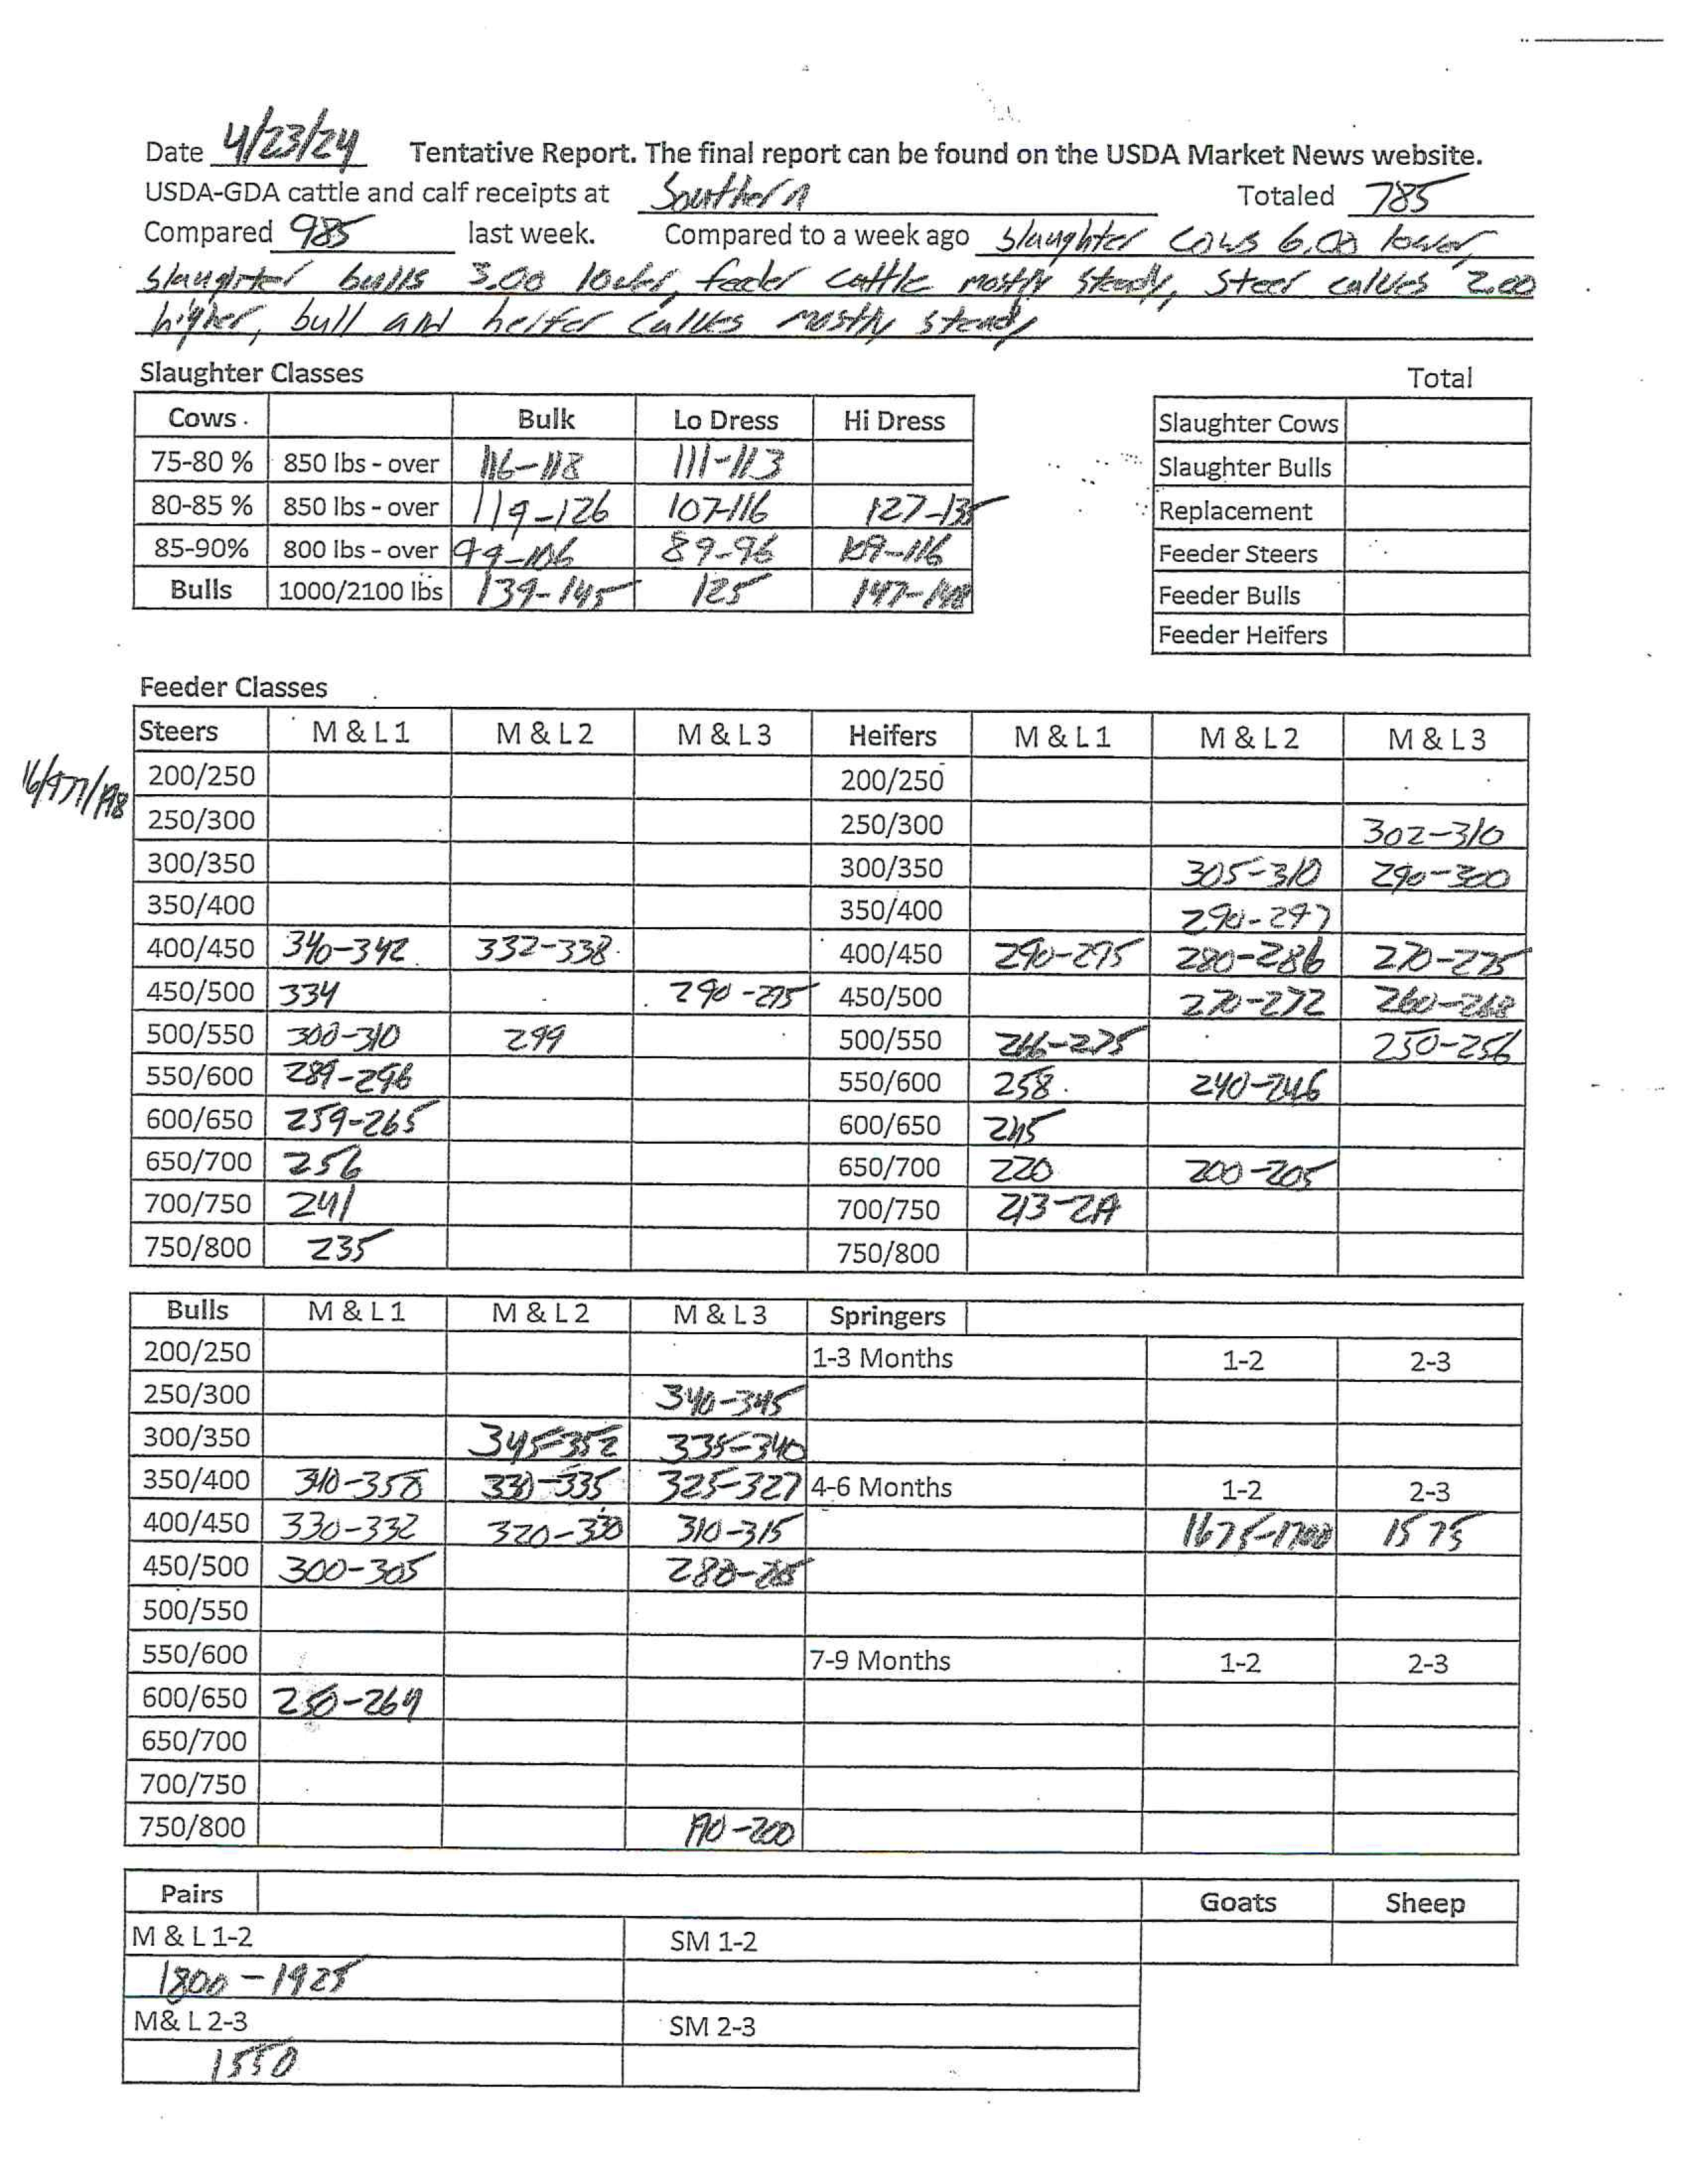 Date 4/23/24 Tentative Report. The final report can be found on the USDA Market News website.
USDA-GDA cattle and calf receipts at Southern Totaled 785
Compared 985 last week. Compared to a week ago slaughter cows 6.00 lower,
slaughter bulls 3.00 lower, feeder cattle mostly steady, steer calves 2.00
higher, bull and heifer calves mostly steady
Slaughter Classes
Cows Bulk Lo Dress Hi Dress
75-80 % 850 lbs - over 116-118 111-113
80-85 % 850 lbs - over 119-126 107-116 127-135
85-90% 800 lbs - over 99-106 89-96 109-116
Bulls 1000/2100 lbs 139-145 125 147-148
Total
Slaughter Cows
Slaughter Bulls
Replacement
Feeder Steers
Feeder Bulls
Feeder Heifers
Feeder Classes
Steers M & L 1 M & L 2 M & L 3 Heifers M & L 1 M & L 2 M & L 3
200/250 200/250
250/300 250/300 302-310
300/350 300/350 305-310 290-300
350/400 350/400 290-297
400/450 340-342 332-338 400/450 290-295 280-286 270-275
450/500 334 290-295 450/500 270-272 260-268
500/550 300-310 299 500/550 266-275 250-256
550/600 289-296 550/600 258 240-246
600/650 259-265 600/650 245
650/700 256 650/700 220 200-205
700/750 241 700/750 213-
750/800 235 750/800
Bulls M & L 1 M & L 2 M & L 3 Springers
200/250 1-3 Months 1-2 2-3
250/300 340-345
300/350 345-352 335-340
350/400 340-358 330-335 325-327 4-6 Months 1-2 2-3
400/450 330-332 320-330 310-315 1675-1700 1575
450/500 300-305 280-285
500/550
550/600 7-9 Months 1-2 2-3
600/650 250-264
650/700
700/750
750/800 190-200
Pairs Goats Sheep
M & L 1-2 SM 1-2
1800-1925
M& L 2-3 SM 2-3
1550